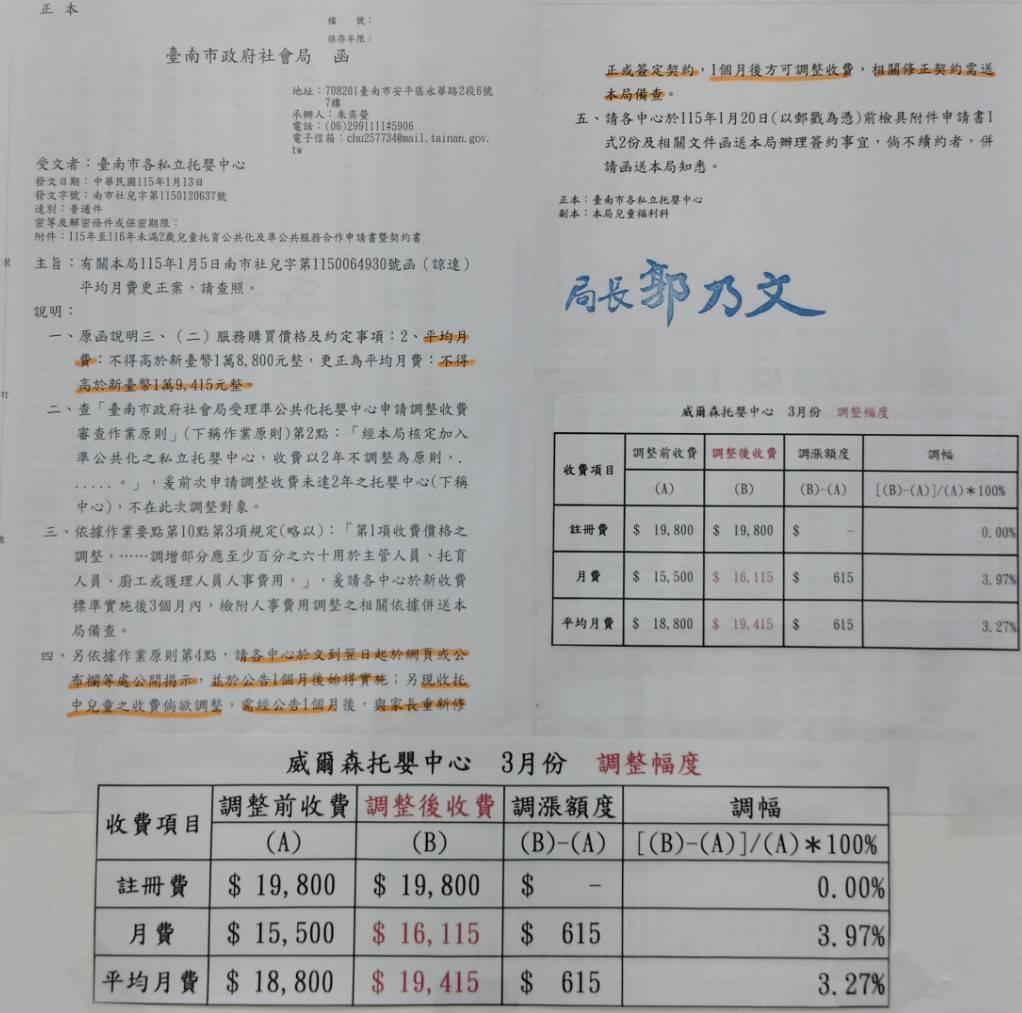 正 本
檔　號：
保存年限：
臺南市政府社會局　函
地址：708201臺南市安平區永華路2段6號
7樓
承辦人：朱奕瑩
電話：(06)2991111#5906
電子信箱：chu257734@mail.tainan.gov.
tw
受文者：臺南市各私立托嬰中心
發文日期：中華民國115年1月13日
發文字號：南市社兒字第1150120637號
速別：普通件
密等及解密條件或保密期限：
附件：115年至116年未滿2歲兒童托育公共化及準公共服務合作申請書暨契約書
主旨：有關本局115年1月5日南市社兒字第1150064930號函（諒達）
平均月費更正案，請查照。
說明：
一、原函說明三、（二）服務購買價格及約定事項：2、平均月
費：不得高於新臺幣1萬8,800元整，更正為平均月費：不得
高於新臺幣1萬9,415元整。
二、查「臺南市政府社會局受理準公共化托嬰中心申請調整收費
審查作業原則」(下稱作業原則)第2點：「經本局核定加入
準公共化之私立托嬰中心，收費以2年不調整為原則，.
.....。」，爰前次申請調整收費未達2年之托嬰中心(下稱
中心)，不在此次調整對象。
三、依據作業要點第10點第3項規定(略以)：「第1項收費價格之
調整，……調增部分應至少百分之六十用於主管人員、托育
人員、廚工或護理人員人事費用。」，爰請各中心於新收費
標準實施後3個月內，檢附人事費用調整之相關依據併送本
局備查。
四、另依據作業原則第4點，請各中心於文到翌日起於網頁或公
布欄等處公開揭示，並於公告1個月後始得實施；另現收托
中兒童之收費倘欲調整，需經公告1個月後，與家長重新修
裝
訂
正或簽定契約，1個月後方可調整收費，相關修正契約需送
本局備查。
五、請各中心於115年1月20日(以郵戳為憑)前檢具附件申請書1
式2份及相關文件函送本局辦理簽約事宜，倘不續約者，併
請函送本局知悉。
正本：臺南市各私立托嬰中心
副本：本局兒童福利科
局長郭乃文
威爾森托嬰中心　3月份　調整幅度
收費項目 調整前收費 調整後收費 調漲額度 調幅
(A) (B) (B)-(A) [(B)-(A)]/(A)*100%
註冊費 $ 19,800 $ 19,800 $ - 0.00%
月費 $ 15,500 $ 16,115 $ 615 3.97%
平均月費 $ 18,800 $ 19,415 $ 615 3.27%
威爾森托嬰中心　3月份　調整幅度
收費項目 調整前收費 調整後收費 調漲額度 調幅
(A) (B) (B)-(A) [(B)-(A)]/(A)*100%
註冊費 $ 19,800 $ 19,800 $ - 0.00%
月費 $ 15,500 $ 16,115 $ 615 3.97%
平均月費 $ 18,800 $ 19,415 $ 615 3.27%